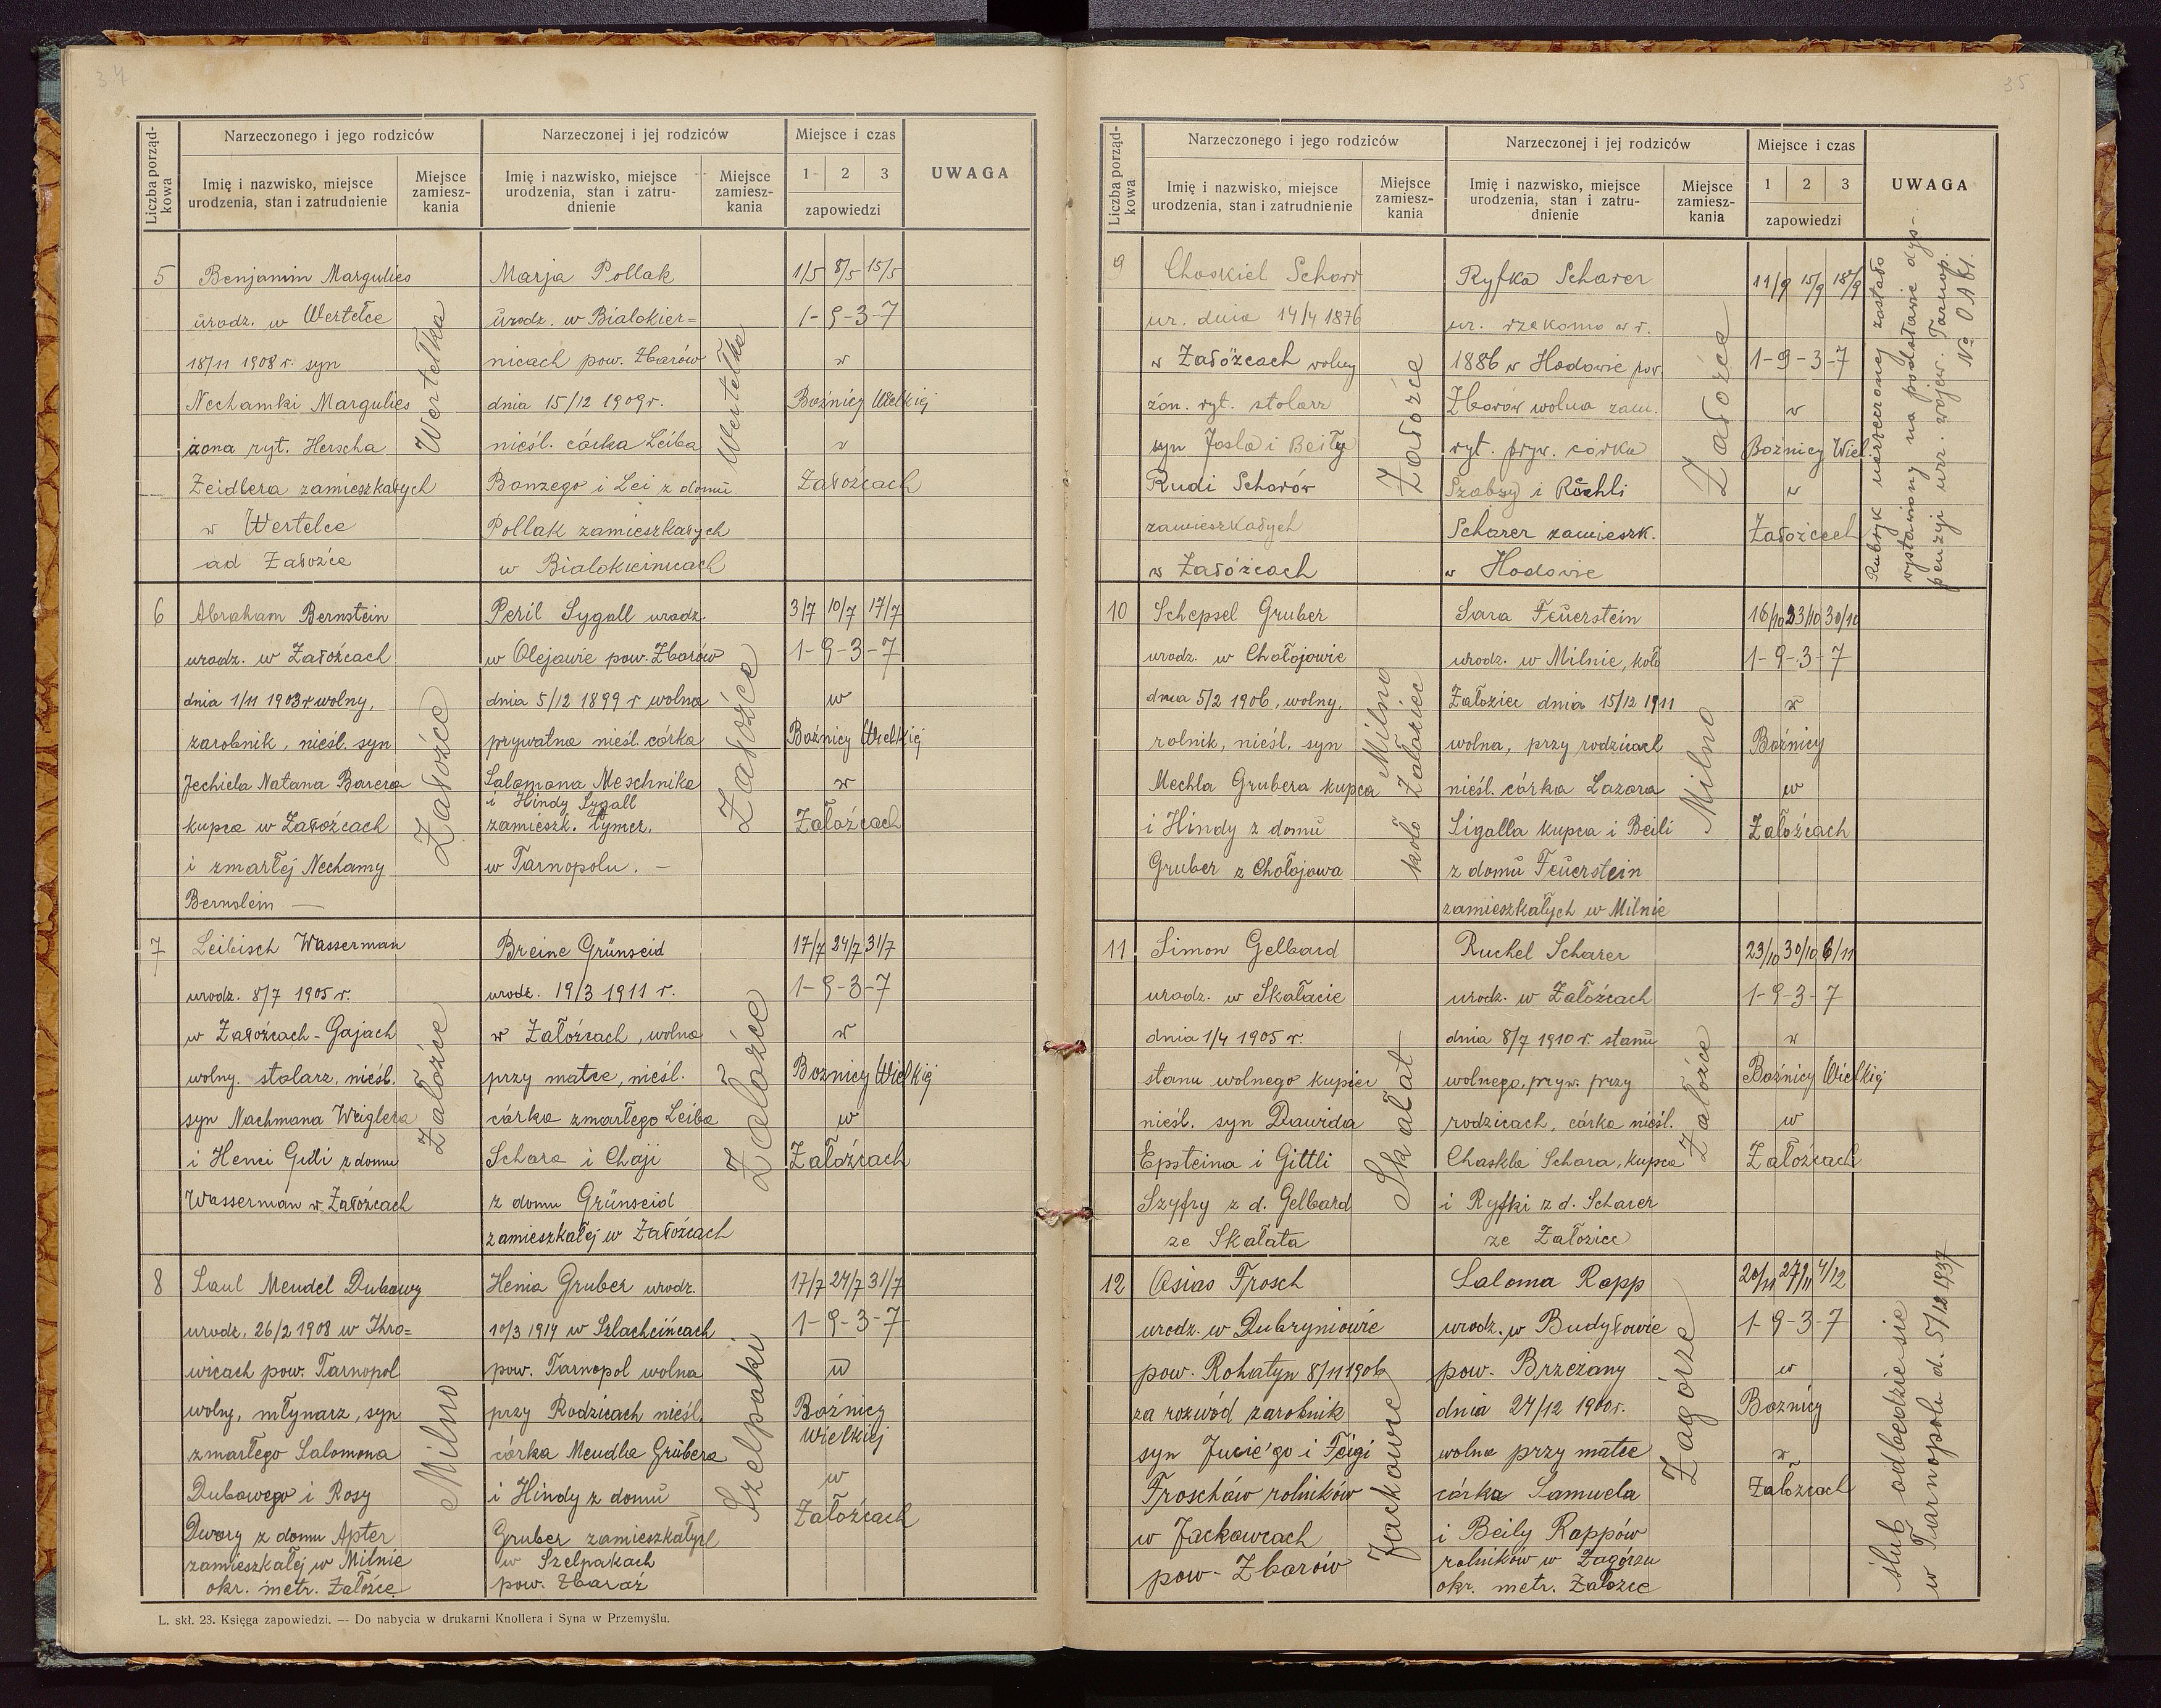 34
Liczba porząd-
kowa
Narzeczonego i jego rodziców
Narzeczonej i jej rodziców
Miejsce i czas
UWAGA
Imię i nazwisko, miejsce
urodzenia, stan i zatrudnienie
Miejsce
zamiesz-
kania
Imię i nazwisko, miejsce
urodzenia, stan i zatru-
dnienie
Miejsce
zamiesz-
kania
1 2 3
zapowiedzi
5
Benjamin Margulies
urodz. w Wertełce
18/11 1908 r. syn
Nechamki Margulies
żona ryt. Herscha
Zeidlera zamieszkałych
w Wertelce
ad Załoźce
Wertełka
Marja Pollak
urodz. w Bialokier=
nicach pow. Zborów
dnia 15/12 1909 r.
nieśl. córka Leiba
Bonzego i Lei z domu
Pollak zamieszkałych
w Bialokiernicach
Wertełka
1/5 8/5 15/5
1-9-3-7
w
Bożnicy Wielkiej
w
Załoźcach
6
Abraham Bernstein
urodz. w Załoźcach
dnia 1/11 1903 r wolny,
zarobnik, nieśl. syn
Jechiela Natana Barera
kupca w Załoźcach
i zmarłej Nechamy
Bernstein —
Załoźce
Peril Sygall urodz.
w Olejowie pow. Zborów
dnia 5/12 1899 r wolna
prywatna nieśl. córka
Salamona Meschnika
i Hindy Sygall
zamieszk. tymcz.
w Tarnopolu. —
Załoźce
3/7 10/7 17/7
1-9-3-7
w
Bożnicy Wielkiej
w
Załoźcach
7
Leibisch Wasserman
urodz. 8/7 1905 r.
w Załoźcach-Gajach
wolny. stolarz, nieśl.
syn Nachmana Weiglera
i Henci Gitli z domu
Wasserman w Załoźcach
Załoźce
Breine Grünseid
urodz. 19/3 1911 r.
w Załoźcach, wolna
przy matce, nieśl.
córka zmarłego Leiba
Schara i Chaji
z domu Grünseid
zamieszkałej w Załoźcach
Załoźce
17/7 24/7 31/7
1-9-3-7
w
Bożnicy Wielkiej
w
Załoźcach
8
Saul Mendel Dubowy
urodz. 26/2 1908 w Ihro=
wicach pow. Tarnopol
wolny, młynarz, syn
zmarłego Salomona
Dubowego i Rosy
Dwory z domu Apter
zamieszkałej w Milnie
okr. metr. Załoźce
Milno
Henia Gruber urodz.
10/3 1914 w Szlachcińcach
pow. Tarnopol wolna
przy Rodzicach nieśl.
córka Mendla Grubera
i Hindy z domu
Gruber zamieszkałych
w Szelpakach
pow. Zbaraż
Szelpaki
17/7 24/7 31/7
1-9-3-7
w
Bożnicy
Wielkiej
w
Załoźcach
L. skł. 23. Księga zapowiedzi. — Do nabycia w drukarni Knollera i Syna w Przemyślu.
35
Liczba porząd-
kowa
Narzeczonego i jego rodziców
Narzeczonej i jej rodziców
Miejsce i czas
UWAGA
Imię i nazwisko, miejsce
urodzenia, stan i zatrudnienie
Miejsce
zamiesz-
kania
Imię i nazwisko, miejsce
urodzenia, stan i zatru-
dnienie
Miejsce
zamiesz-
kania
1 2 3
zapowiedzi
9
Choskiel Scharr
ur. dnia 14/4 1876
w Załoźcach wolny
żon. ryt. stolarz
syn Josla i Beiły
Rudi Scharów
zamieszkałych
w Załóźcach
Załoźce
Ryfka Scharer
ur. rzekomo w r.
1886 w Hodowie pow.
Zborów wolna zam.
ryt. pryw. córka
Szabsy i Rüchli
Scharer zamieszk.
w Hodowie
Załoźce
11/9 15/9 18/9
1-9-3-7
w
Bożnicy Wiel
w
Załoźcach
Rubryk narzeczonej została
wystawiony na podstawie dys-
penzji urz. wojew. Tarnop.
10
Schepsel Gruber
urodz. w Chołojowie
dnia 5/2 1906, wolny,
rolnik, nieśl. syn
Mechla Grubera kupca
i Hindy z domu
Gruber z Chołojowa
Milno
koło Załoziec
Sara Feuerstein
urodz. w Milnie, koło
Załoziec dnia 15/12 1911
wolna, przy rodzicach
nieśl. córka Lazara
Sigalla kupca i Beili
z domu Feuerstein
zamieszkałych w Milnie
Milno
16/10 23/10 30/10
1-9-3-7
w
Bożnicy
w
Załoźcach
11
Simon Gelbard
urodz. w Skałacie
dnia 1/4 1905 r.
stanu wolnego kupiec
nieśl. syn Dawida
Epsteina i Gittli
Szyfry z d. Gelbard
ze Skałata
Skałat
Ruchel Scharer
urodz. w Załoźcach
dnia 8/7 1910 r. stanu
wolnego, pryw. przy
rodzicach, córka nieśl.
Chaskla Schara, kupca
i Ryfki z d. Scharer
ze Załozice
Załoźce
23/10 30/10 6/11
1-9-3-7
w
Bożnicy Wielkiej
w
Załoźcach
12
Osias Frosch
urodz. w Dubryniowie
pow. Rohatyn 8/11 1906
za rozwód zarobnik
syn Jucie'go i Feigi
Froschów rolników
w Jackowcach
pow- Zborów
Jackowce
Saloma Rapp
urodz. w Budyłowie
pow. Brzeżany
dnia 24/12 1900 r.
wolna przy matce
córka Samuela
i Beily Rappów
rolników w Zagórzu
okr. metr. Załozce
Zagórze
20/11 27/11 4/12
1-9-3-7
w
Bożnicy
w
Załoźcach
ślub odbędzie się
w Tarnopolu d. 5/12 1937